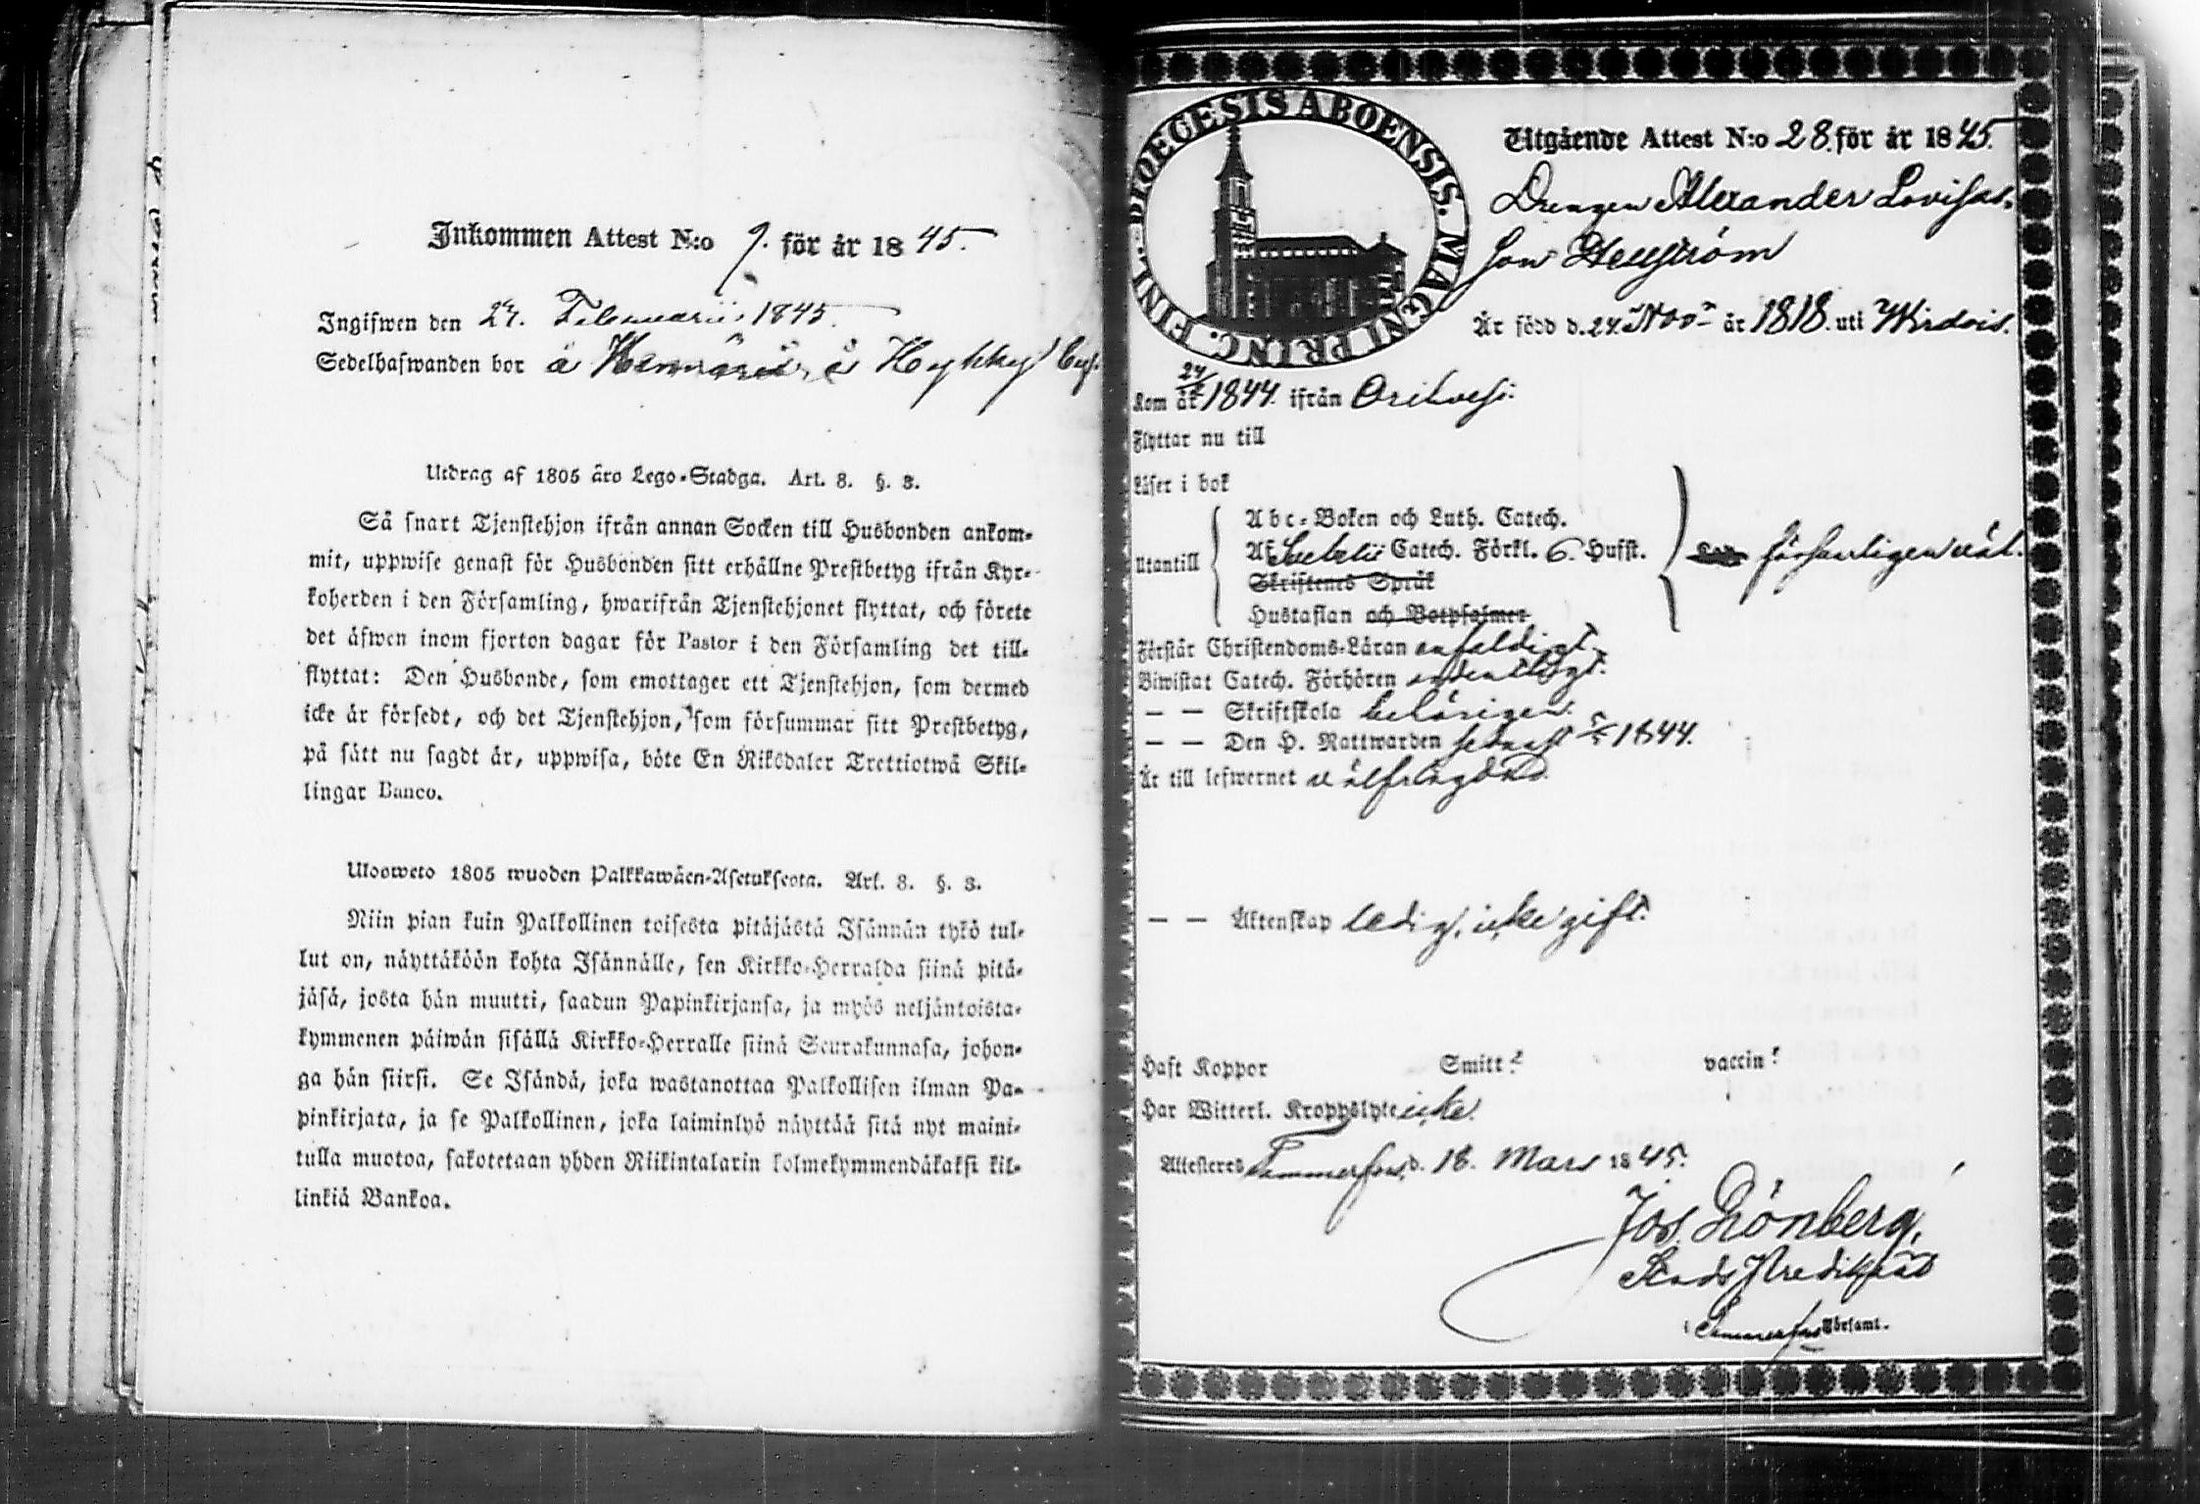 Inkommen Attest N:o 9. för år 1845.
Ingifwen den 24. Februarii 1845.
Sedelhafwanden bor å
Utdrag af 1805 åro Lego-Stadga. Art. 8. §. 3.
Så snart Tjenstehjon ifrån annan Socken till Husbonden ankom-
mit, uppwise genast för Husbonden sitt erhållne Prestbetyg ifrån Kyr-
koherden i den Församling, hwarifrån Tjenstehjonet flyttat, och förete
det äfwen inom fjorton dagar för Pastor i den Församling det till-
flyttat: Den Husbonde, som emottager ett Tjenstehjon, som dermed
icke är försedt, och det Tjenstehjon, som försummar sitt Prestbetyg,
på sätt nu sagdt är, uppwisa, böte En Riksdaler Trettiotwå Skil-
lingar Banco.
Ulosweto 1805 wuoden Palkkawäen-Asetuksesta. Art. 8. §. 3.
Niin pian kuin Palkollinen toisesta pitäjästä Isännän tykö tul-
lut on, näyttäköön kohta Isännälle, sen Kirkko-Herralda siinä pitä-
jäsä, josta hän muutti, saadun Papinkirjansa, ja myös neljäntoista-
kymmenen päiwän sisällä Kirkko-Herralle siinä Seurakunnasa, johon-
ga hän siirsi. Se Isändä, joka wastanottaa Palkollisen ilman Pa-
pinkirjata, ja se Palkollinen, joka laiminlyö näyttää sitä nyt maini-
tulla muotoa, sakotetaan yhden Riikintalarin kolmekymmendäkaksi kil-
linkiä Bankoa.
DIOECESIS ABOENSIS. MAGNI PRINC. FINL.
Utgående Attest N:o 28. för år 1845.
Drengen Alexander Lovisas
son Hellström
Är född d. 24. Nov. år 1818. uti Wirdois.
Kom år 24/2 1844. ifrån Orivesi.
Flyttar nu till
Läser i bok
Utantill
Abc-Boken och Luth. Catech.
Af Svebelii Catech. Förkl. 6. Hufst.
Skriftenes Språk
Hustaflan och Botpsalmer
försvarligen
Förstår Christendoms-Läran enfaldigt.
Biwistat Catech. Förhören ordentligt.
— — Skriftskola behörigen.
— — Den H. Nattwarden sednast 1844.
Är till lefwernet välfrägdad.
— — Äktenskap ledig, icke gift.
Haft Koppor Smitt.? vaccin?
Har Witterl. Kroppslyte icke.
Attesteras Tammerfors, d. 18. Mars 1845.
Jos. Grönberg,
Stads Predikant
i Tammerfors Församl.